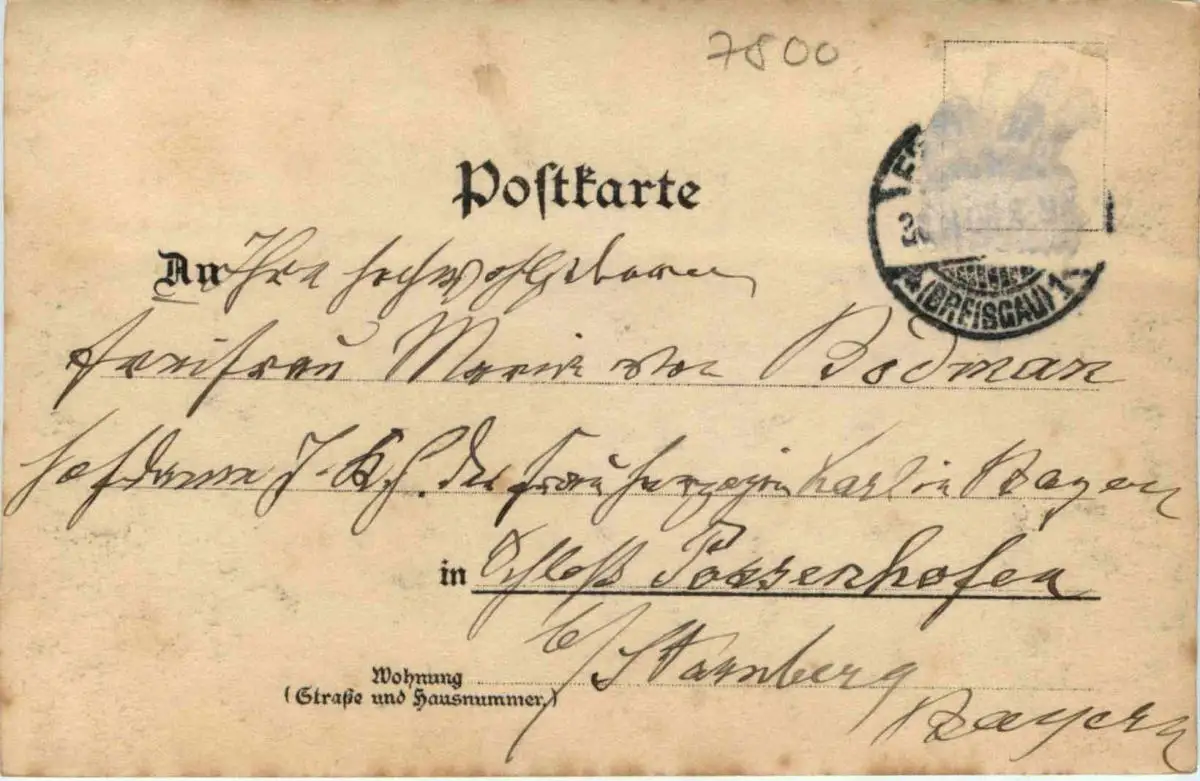 7800
Postkarte
An Ihre Hochwohlgeboren
Freifrau Marie von Bodman
Hofdame I. K. H. der Frau Herzogin Karl in Bayern
in Schloß Possenhofen
b/ Starnberg
Wohnung
(Straße und Hausnummer.)
Bayern
(BREISGAU) 1